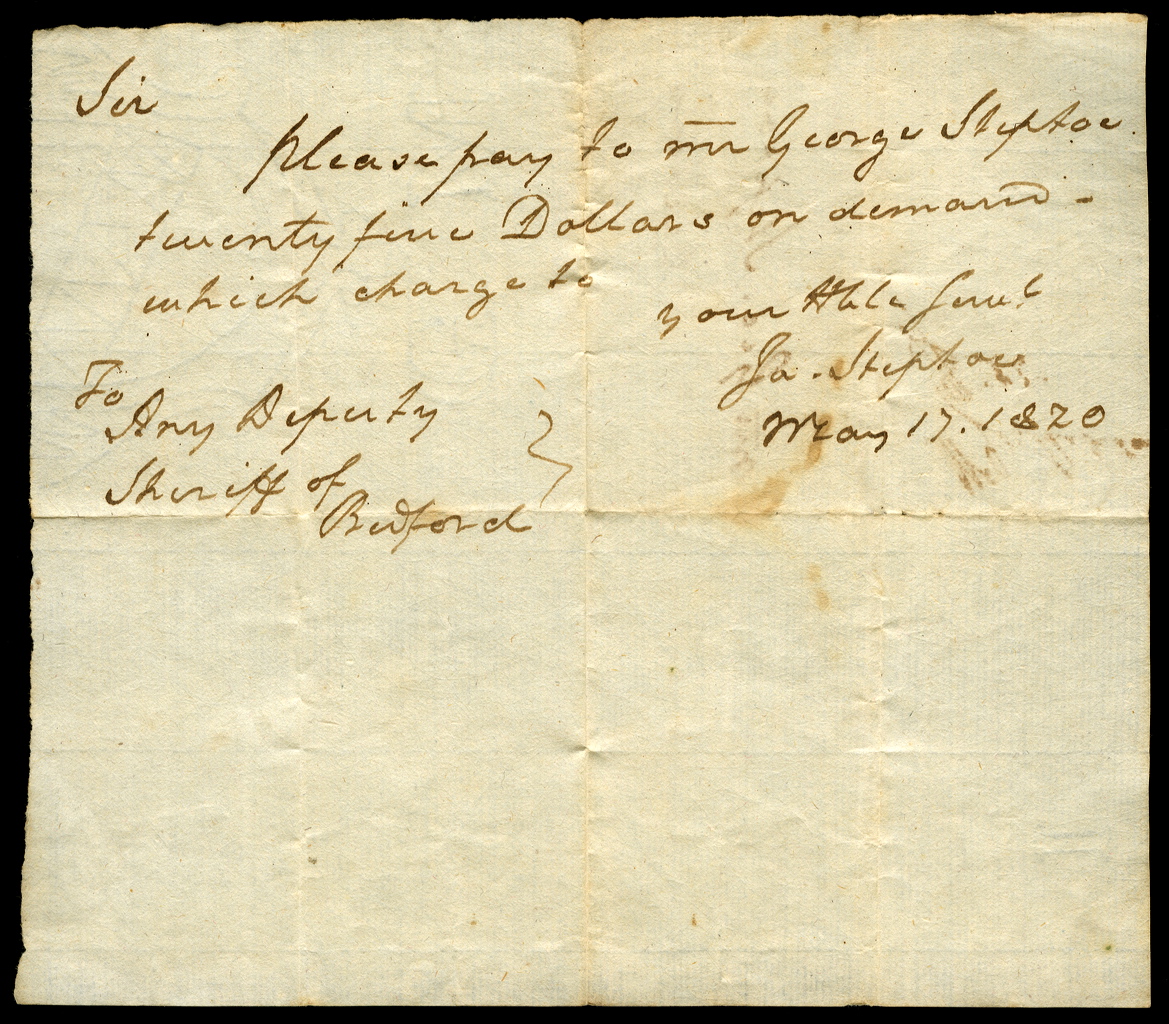 Sir
Please pay to mr George Steptoe
twenty five Dollars on demand -
which charge to
your Hble Servt
Ja. Steptoe
May 17. 1820
To
Any Deputy
Sheriff of
Bedford